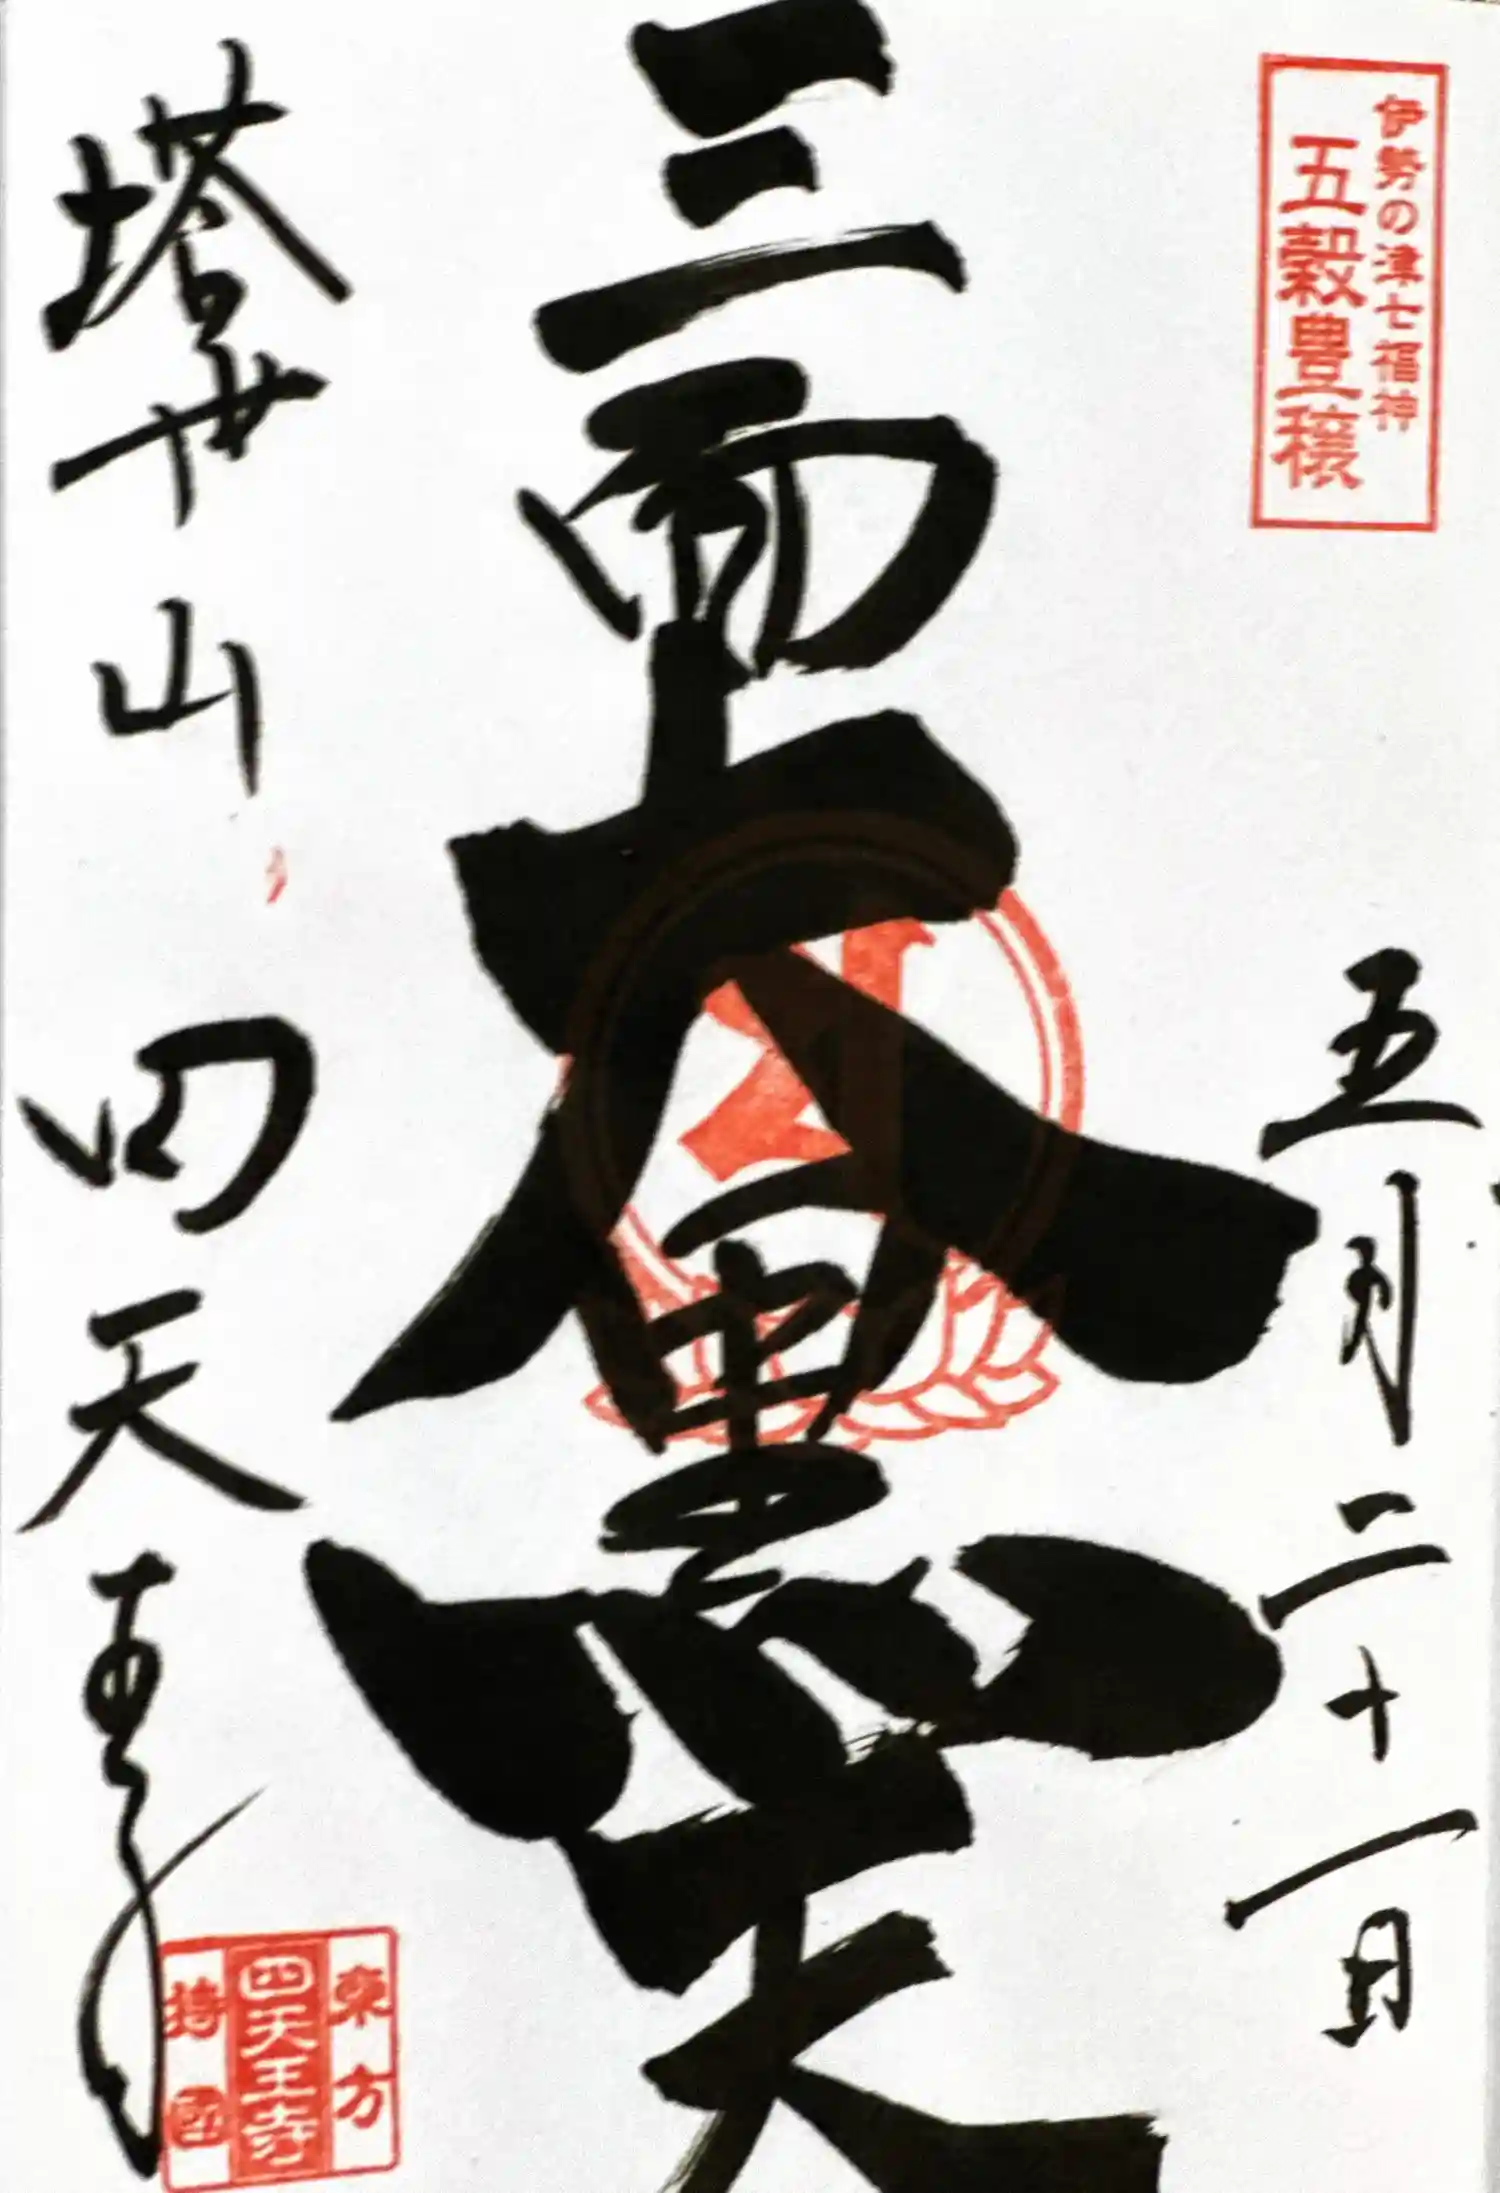 伊勢の津七福神
五穀豊穣
五月二十一日
三面大黒天
塔世山
四天王寺
東方
四天王寺
持国